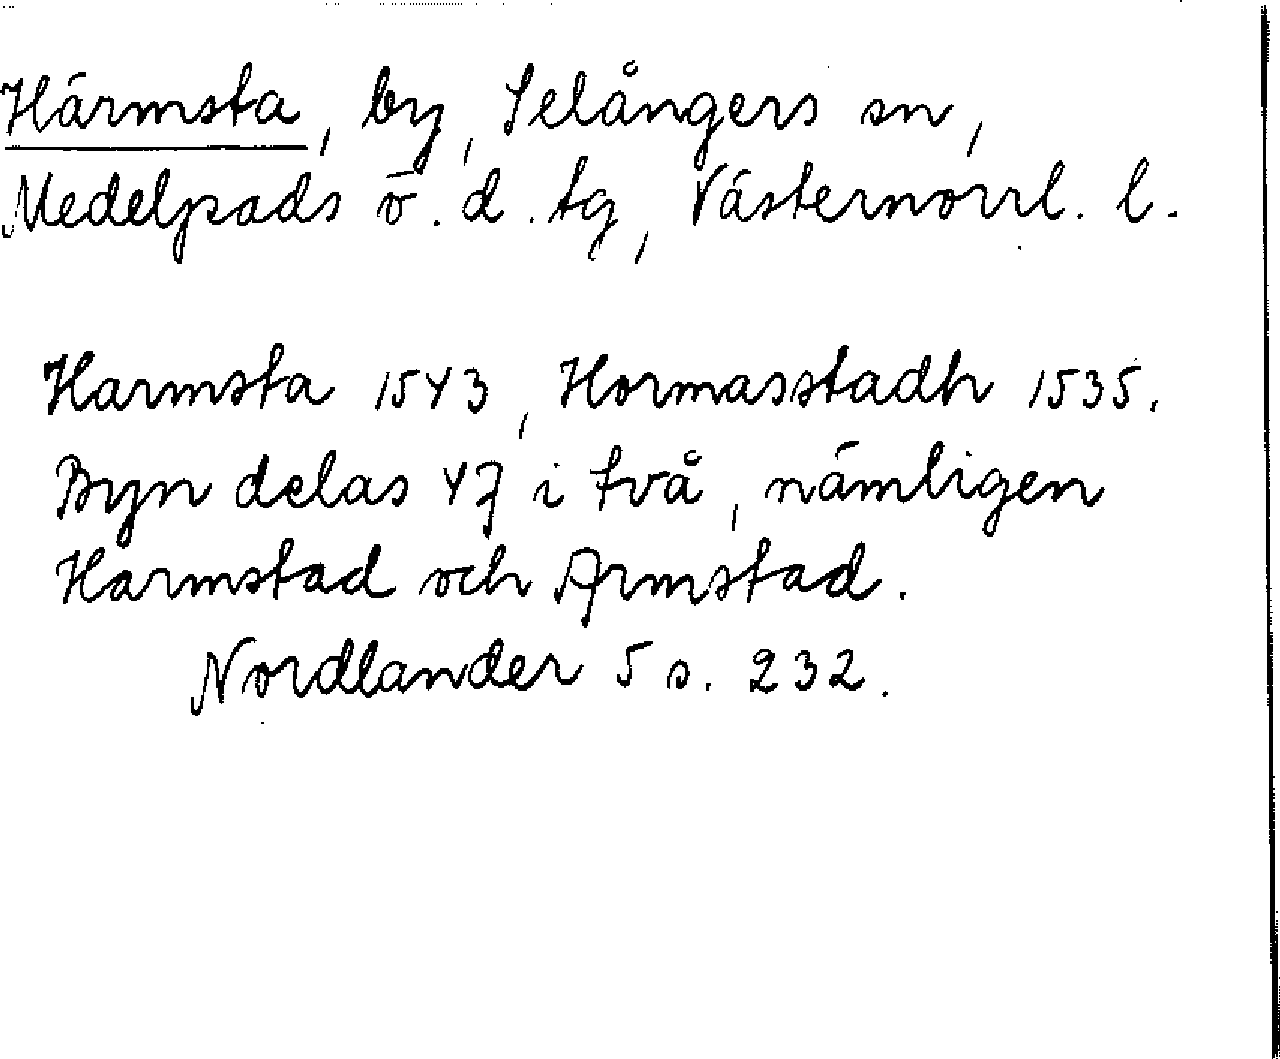 Härmsta, by, Selångers sn,
Medelpads v. d. tg, Västernorrl. l.
Harmsta 1543, Hormasstadh 1535.
Byn delas 47 i två, nämligen
Harmstad och Armstad.
Nordlander 5 s. 232.